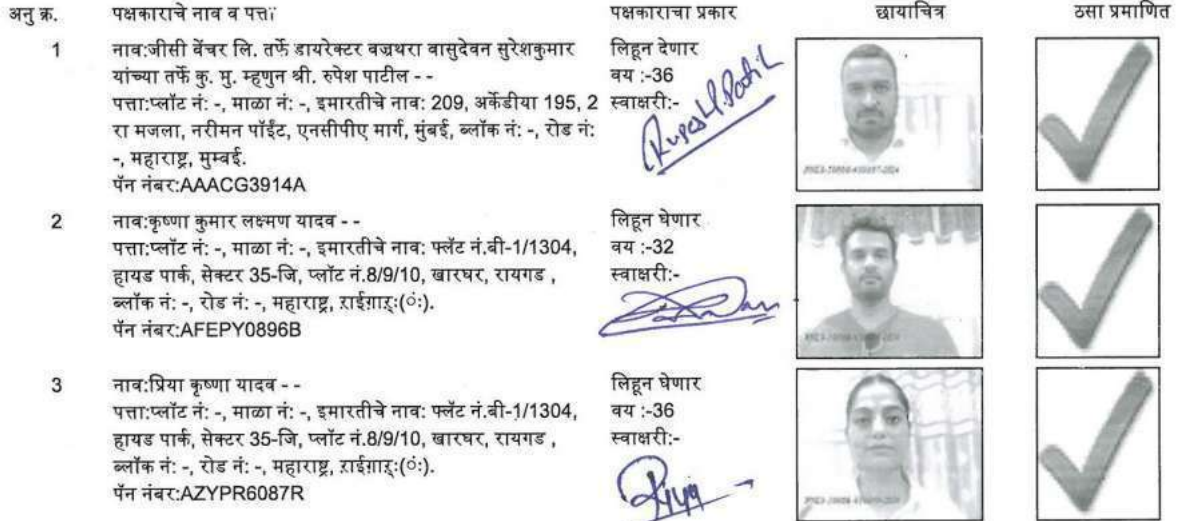 अनु क्र. पक्षकाराचे नाव व पत्ता पक्षकाराचा प्रकार छायाचित्र ठसा प्रमाणित
1 नाव:जीसी वेंचर लि. तर्फे डायरेक्टर वज्रथरा वासुदेवन सुरेशकुमार
यांच्या तर्फे कु. मु. म्हणुन श्री. रुपेश पाटील - -
पत्ता:प्लॉट नं: -, माळा नं: -, इमारतीचे नाव: 209, अर्केडीया 195, 2
रा मजला, नरीमन पॉईंट, एनसीपीए मार्ग, मुंबई, ब्लॉक नं: -, रोड नं:
-, महाराष्ट्र, मुम्बई.
पॅन नंबर:AAACG3914A
लिहून देणार
वय :-36
स्वाक्षरी:-
Rupesh.Patil
2 नाव:कृष्णा कुमार लक्ष्मण यादव - -
पत्ता:प्लॉट नं: -, माळा नं: -, इमारतीचे नाव: फ्लॅट नं.बी-1/1304,
हायड पार्क, सेक्टर 35-जि, प्लॉट नं.8/9/10, खारघर, रायगड ,
ब्लॉक नं: -, रोड नं: -, महाराष्ट्र, राईग़ाऱ्:(ं:).
पॅन नंबर:AFEPY0896B
लिहून घेणार
वय :-32
स्वाक्षरी:-
3 नाव:प्रिया कृष्णा यादव - -
पत्ता:प्लॉट नं: -, माळा नं: -, इमारतीचे नाव: फ्लॅट नं.बी-1/1304,
हायड पार्क, सेक्टर 35-जि, प्लॉट नं.8/9/10, खारघर, रायगड ,
ब्लॉक नं: -, रोड नं: -, महाराष्ट्र, राईग़ाऱ्:(ं:).
पॅन नंबर:AZYPR6087R
लिहून घेणार
वय :-36
स्वाक्षरी:-
Priya